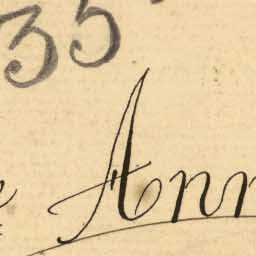 35
Ann